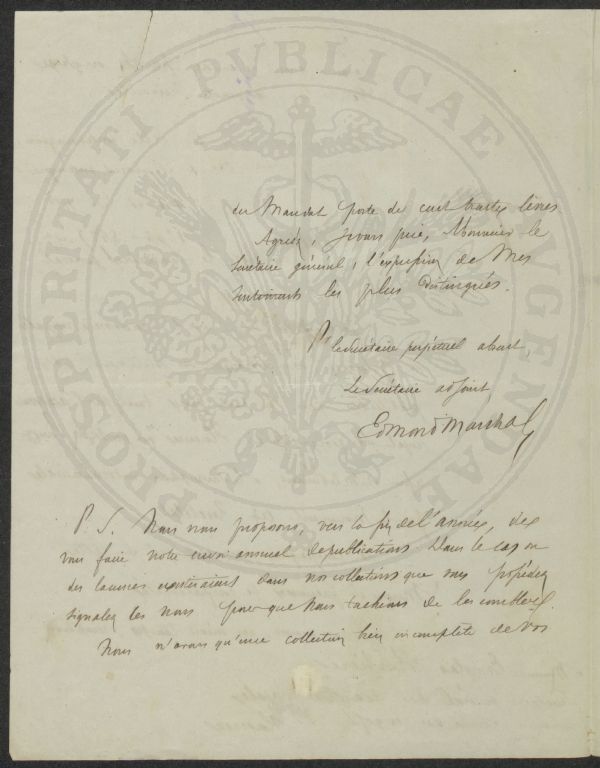 PROSPERITATI PVBLICAE AVGENDAE
du Mandat poste de cent trente livres.
Agréez, je vous prie, Monsieur le
Secrétaire général, l'expression de Mes
sentiments les plus distingués.
Pr le Secrétaire perpétuel absent,
Le Secrétaire adjoint,
Edmond Marchal
P. S. Nous nous proposons, vers la fin de l'année, de
vous faire notre envoi annuel de publications. Dans le cas où
des lacunes existeraient dans nos collections que vous possédez
signalez les nous pour que nous tachions de les combler.
Nous n'avons qu'une collection bien incomplète de vos